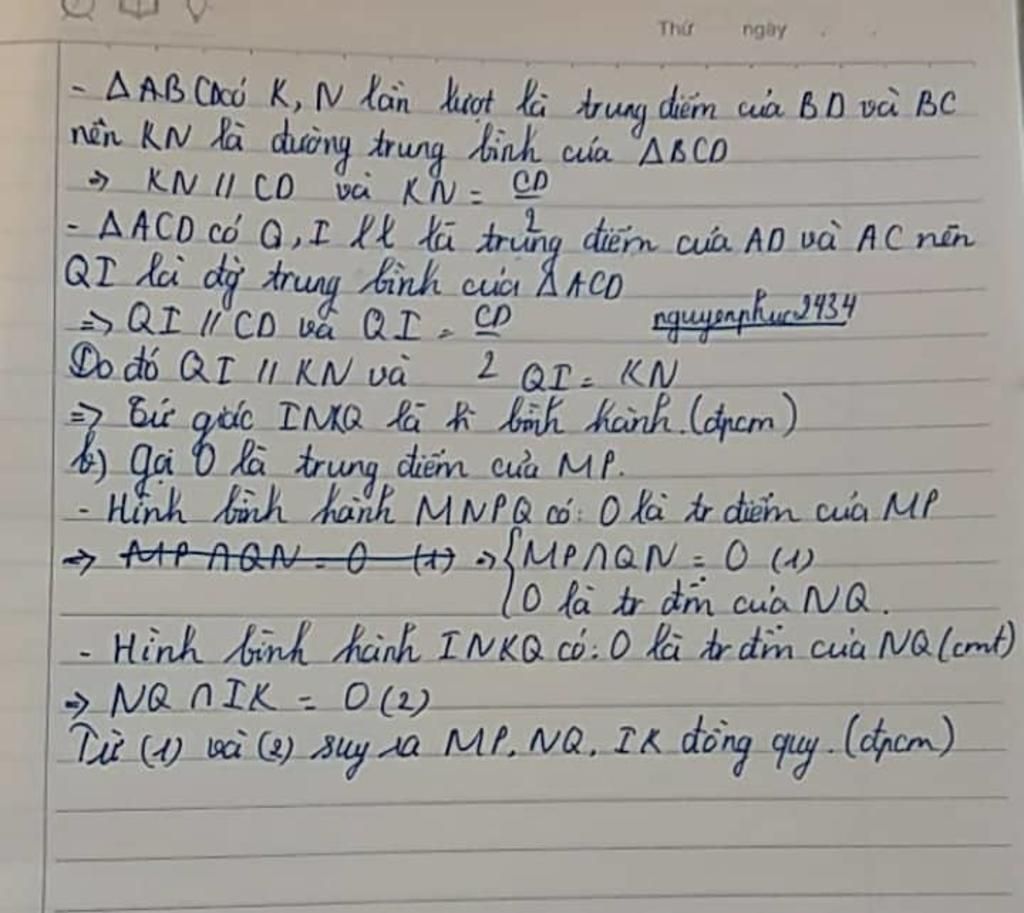 Thứ ngày
- ΔABCD có K, N lần lượt là trung điểm của BD và BC
nên KN là đường trung bình của ΔBCD
=> KN // CD và KN = CD/2
- ΔACD có Q, I ll là trung điểm của AD và AC nên
QI là đg trung bình của ΔACD
=> QI // CD và QI = CD/2
nguyenphuc2434
Do đó QI // KN và QI = KN
=> Tứ giác INKQ là h bình hành. (đpcm)
b) Gọi O là trung điểm của MP.
- Hình bình hành MNPQ có: O là tr điểm của MP
=> MP ∩ QN = O (1) => { MP ∩ QN = O (1)
O là tr đm của NQ.
- Hình bình hành INKQ có: O là tr đm của NQ (cmt)
=> NQ ∩ IK = O (2)
Từ (1) và (2) suy ra MP, NQ, IK đồng quy. (đpcm)